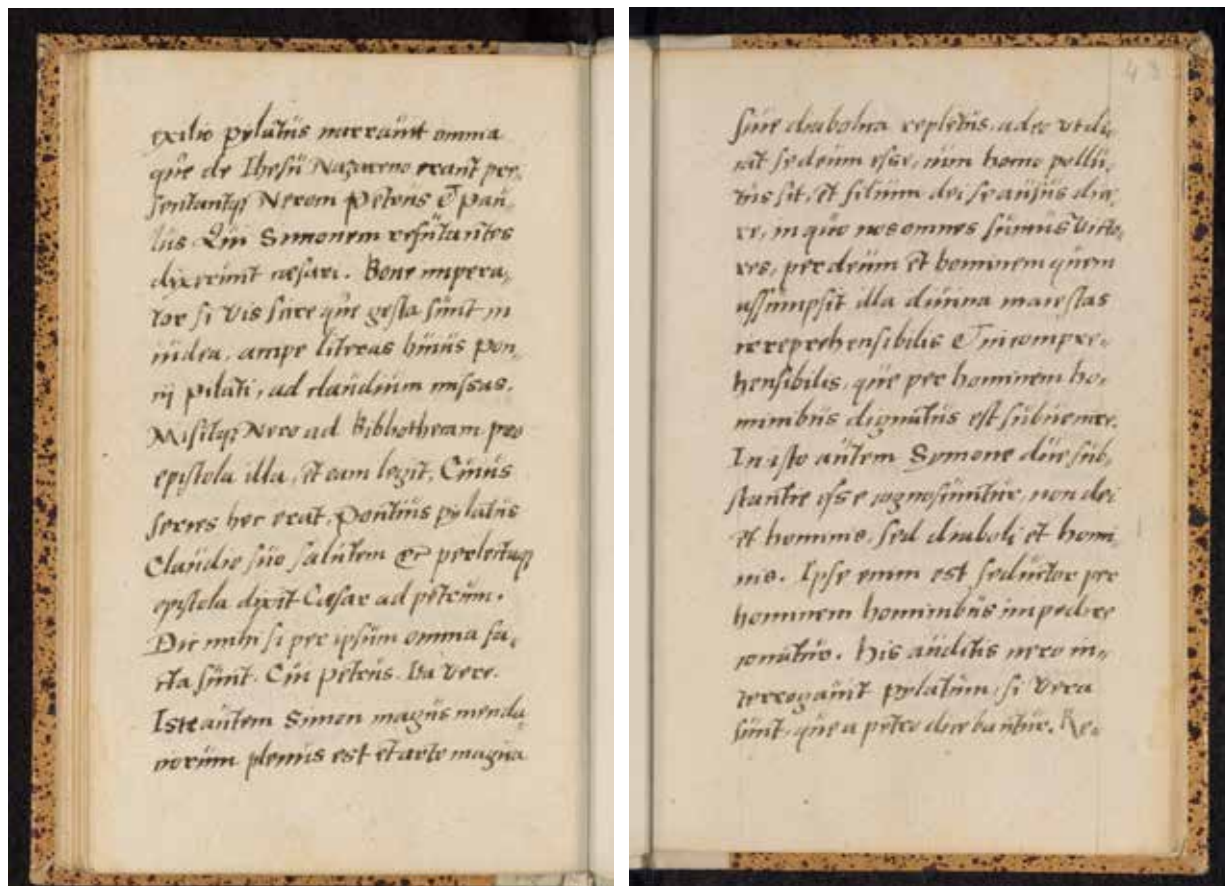 exilio pylatus narravit omnia
que de Ihesu Nazareno erant pre-
sentantq; Nerom Petrus & Pau-
lus. Qui Simonem refutantes
dixerunt cæsari. Bone impera-
tor si vis scire que gesta sunt in
iudea, accipe literas huius pon-
tij Pilati, ad claudium missas.
Misitq; Nero ad Bibliothecam pro
epistola illa, et eam legit, Cuius
series hec erat, Pontius pylatus
Claudio suo salutem &c perlectaq;
epistola dixit Cæsar ad petrum.
Dic mihi si per ipsum omnia fa-
cta sunt. Cui petrus. Ita vere.
Iste autem Simon magus menda-
ciorum plenus est et arte magica
sive diabolica repletus, adeo ut di-
cat se deum esse, cum homo pollu-
tus sit, et filium dei se ausus dice-
re, in quo nos omnes sumus victo-
res, per deum et hominem quem
assumpsit illa divina maiestas
irreprehensibilis & incompre-
hensibilis, que per hominem ho-
minibus dignatus est subvenire.
In isto autem Symone due sub-
stantie esse cognoscuntur, non dei
et hominis, sed diaboli et homi-
nis. Ipse enim est seductor per
hominem hominibus impedire
conatur. His auditis nero in-
terrogavit pylatum, si vera
sunt, que a petro dicebantur. Re-
43